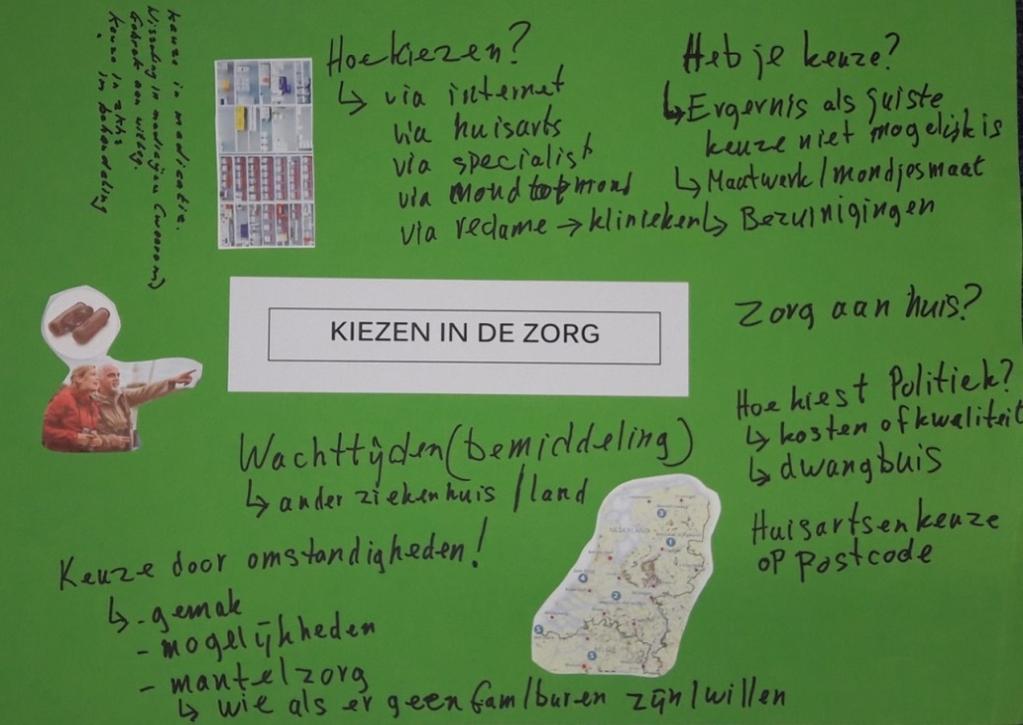 keuze in medicatie.
Wisseling in medicijnen (waarom)
Gebrek aan
keuze in zkhs
in behandeling
Hoe kiezen?
↳ via internet
via huisarts
via specialist
via mond tot mond
via reclame → klinieken
Heb je keuze?
↳ Ergernis als juiste
keuze niet mogelijk is
↳ Maatwerk / mondjesmaat
↳ Bezuinigingen
KIEZEN IN DE ZORG
Zorg aan huis?
Hoe kiest Politiek?
↳ kosten of kwaliteit
↳ dwangbuis
Huisartsenkeuze
op Postcode
Wachttijden (bemiddeling)
↳ ander ziekenhuis / land
Keuze door omstandigheden!
↳ - gemak
- mogelijkheden
- mantelzorg
↳ wie als er geen fam/buren zijn/willen